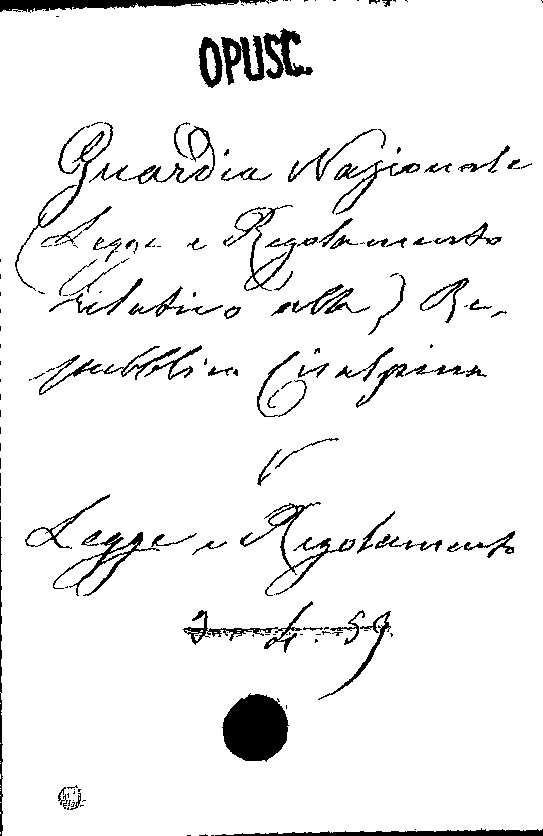 OPUSC.
Guardia Nazionale
(Legge e Regolamento
relativo alla) Re-
pubblica Cisalpina
V
Legge e Regolamento
4. 59